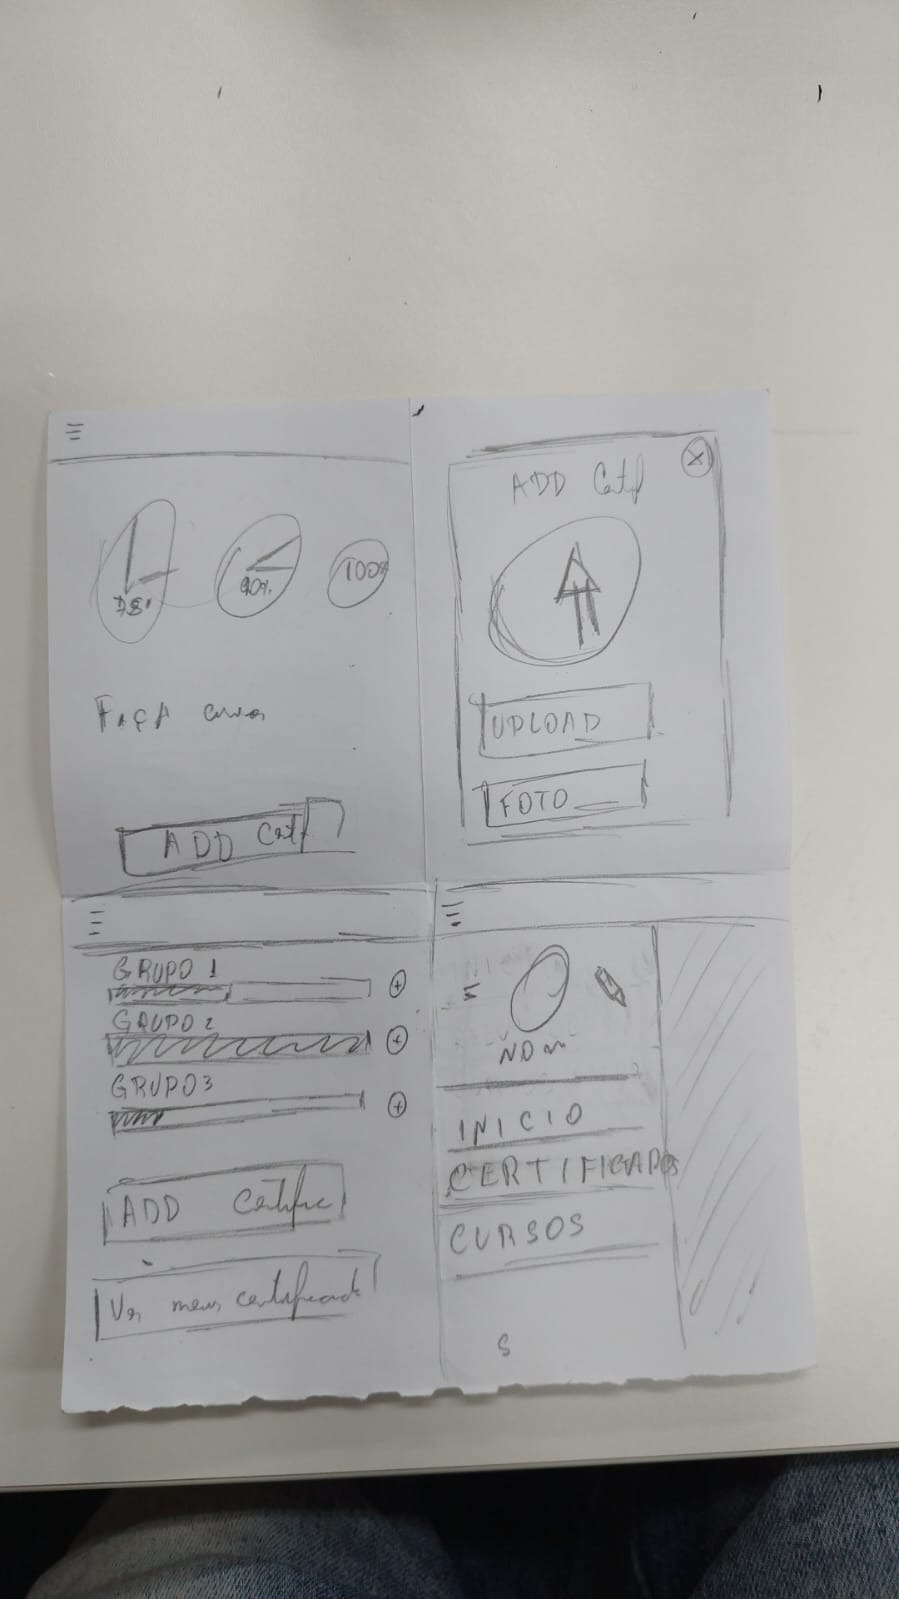 90%
100%
FAÇA
ADD Certf
ADD Certf
UPLOAD
FOTO
GRUPO 1
GRUPO 2
GRUPO 3
ADD Certific
Ver meus certificado
NOM
INICIO
CERTIFICADOS
CURSOS
S